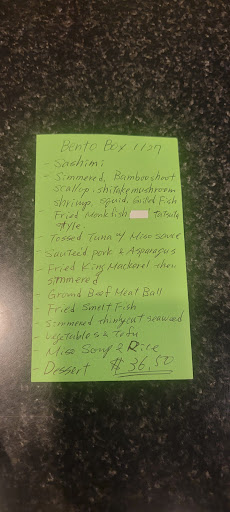 Bento Box 1/27
- Sashimi
- Simmered, Bambooshoot
scallop, shitake mushroom
shrimp, squid, Grilled Fish
- Fried Monkfish Tatsuta
style
- Tossed Tuna w/ Miso sauce
- Sauteed pork & Asparagus
- Fried King Mackerel then
simmered
- Ground Beef Meat Ball
- Fried Smelt Fish
- Simmered thinly cut seaweed
- Vegetables & Tofu
- Miso Soup & Rice
- Dessert $36.50